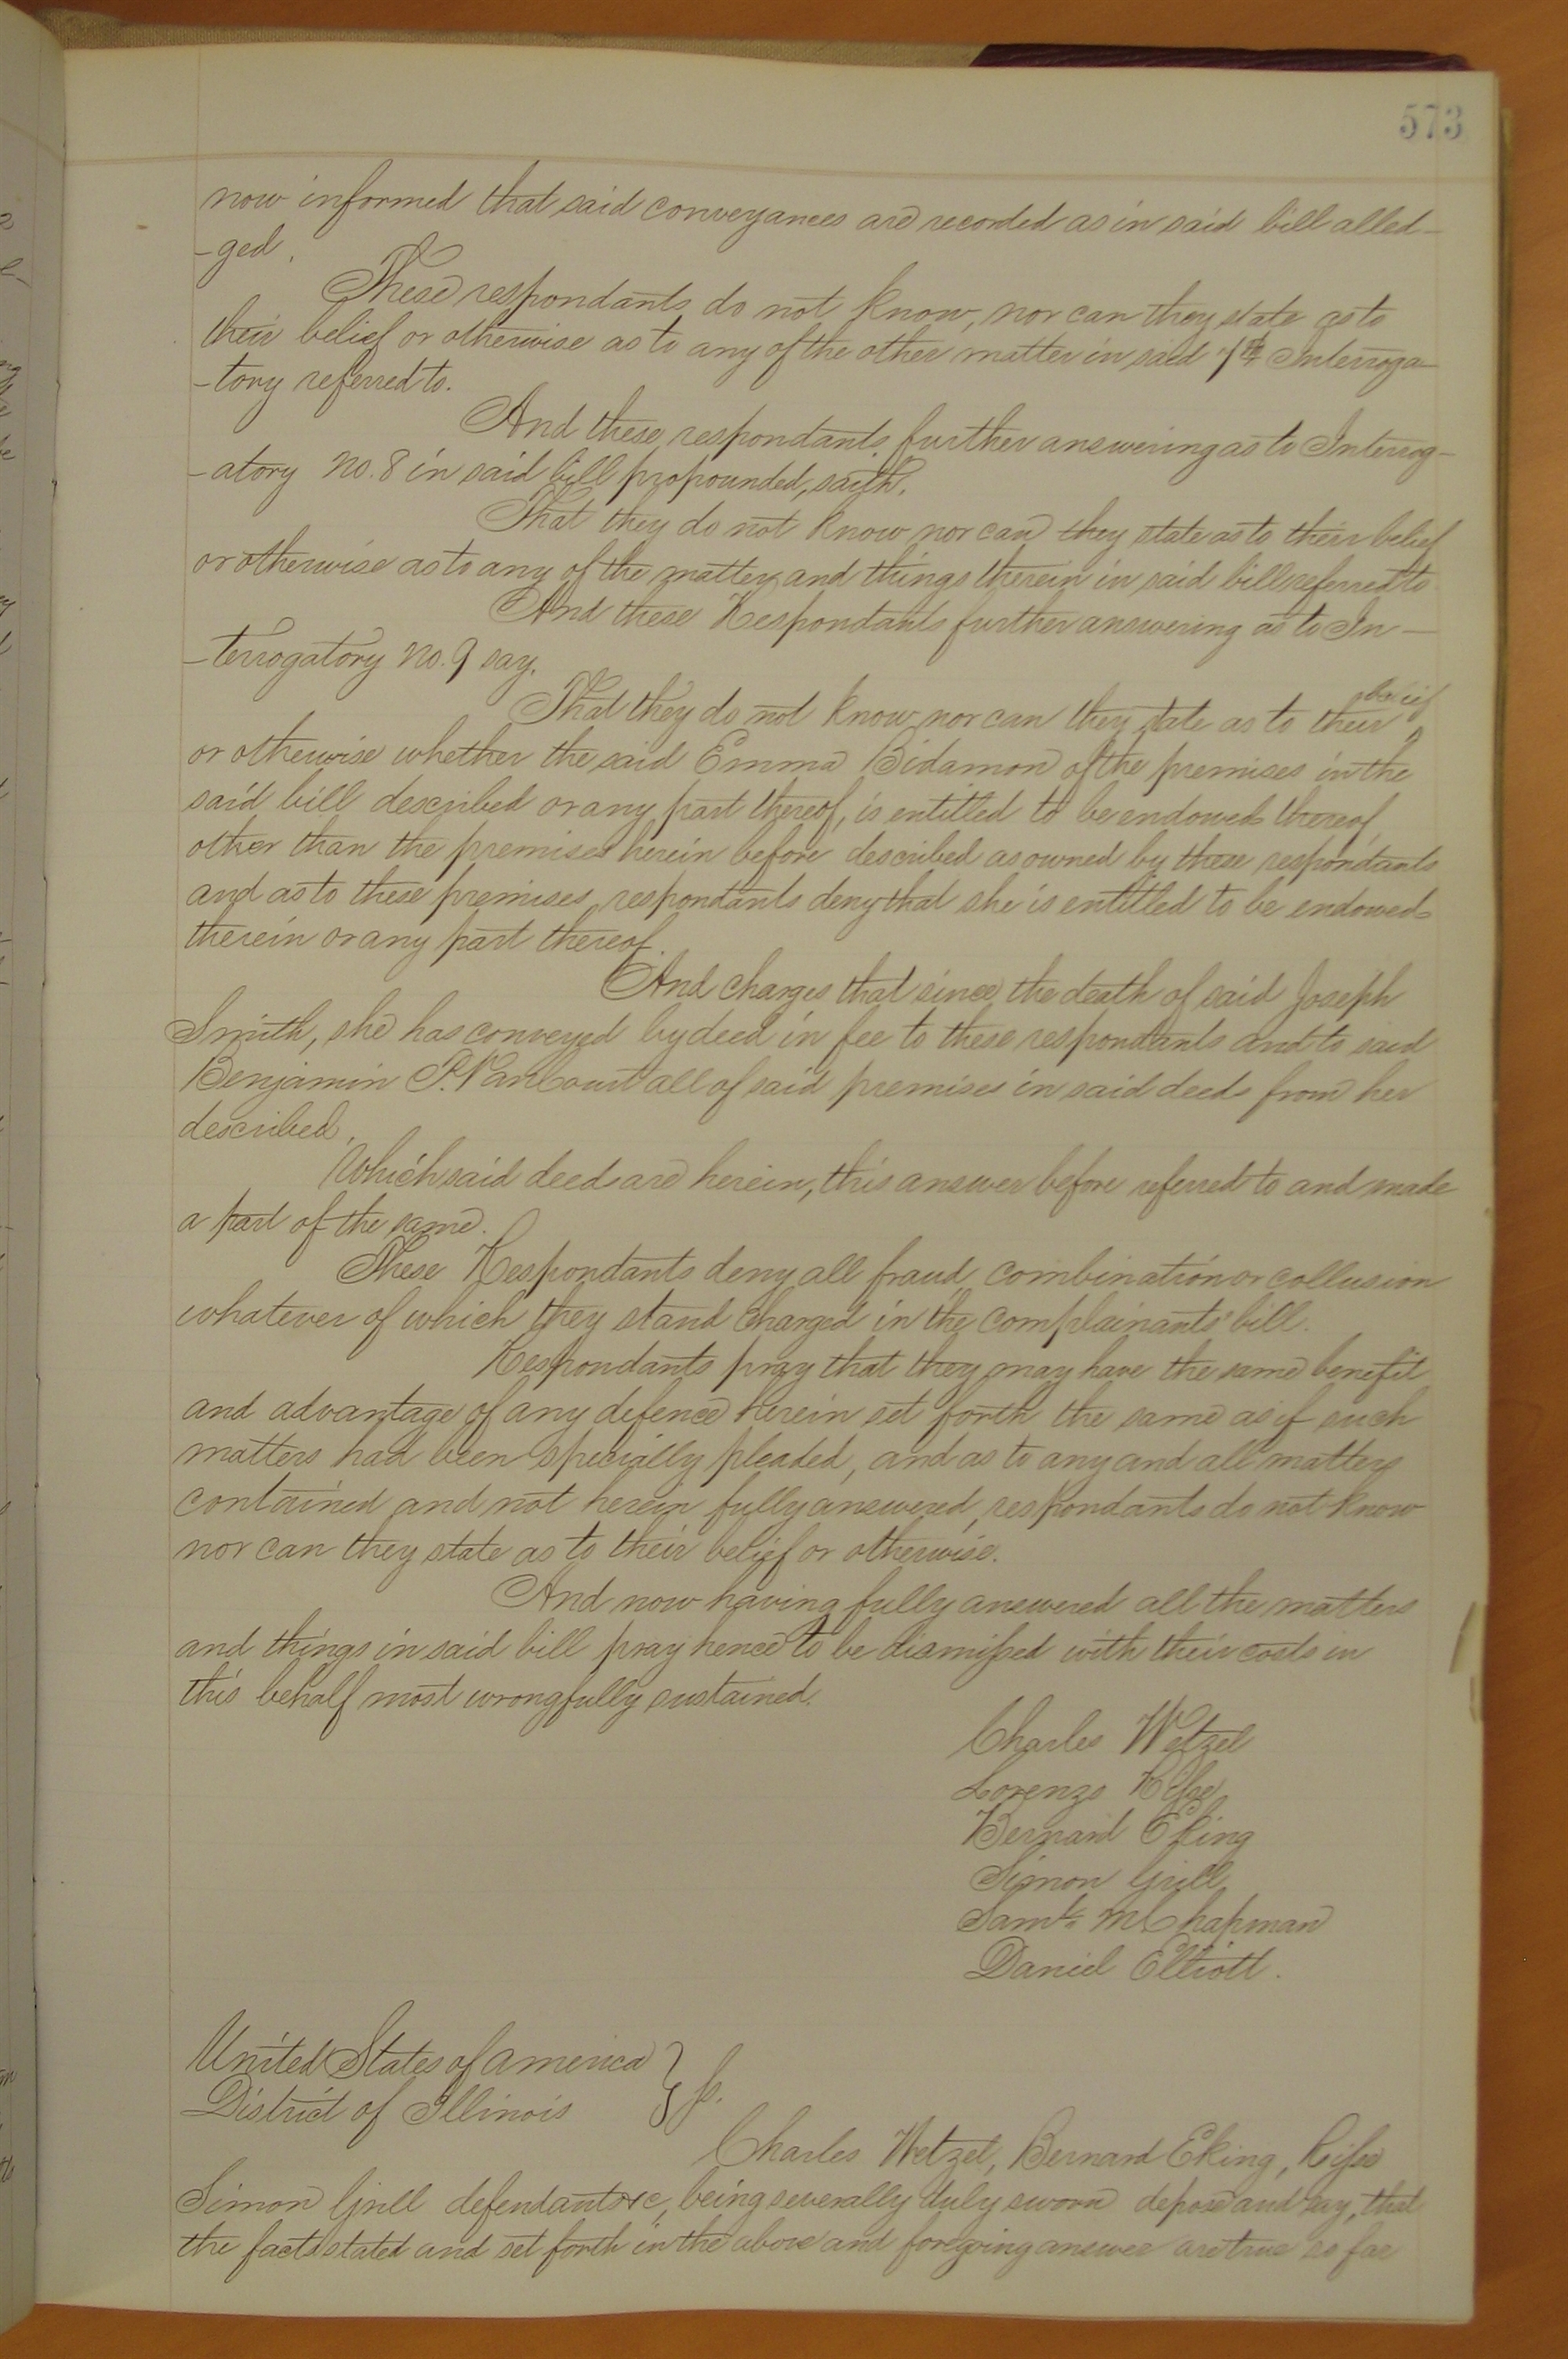 573
now informed that said conveyances are recorded as in said bill alled-
-ged.
These respondants do not know, nor can they state as to
their belief or otherwise as to any of the other matter in said 7th Interroga-
-tory referred to.
And these respondants further answering as to Interrog-
-atory No. 8 in said bill propounded, saith.
That they do not know nor can they state as to their belief
or otherwise as to any of the matters and things therein in said bill referred to
And these Respondants further answering as to In-
-terrogatory No. 9 say.
That they do not know nor can they state as to their belief
or otherwise whether the said Emma Bidamon of the premises in the
said bill described or any part thereof, is entitled to be endowed thereof,
other than the premises herein before described as owned by these respondants
and as to these premises, respondants deny that she is entitled to be endowed
therein or any part thereof.
And charges that since the death of said Joseph
Smith, she has conveyed by deed in fee to these respondants and to said
Benjamin P. VanCourt all of said premises in said deeds from her
described.
Which said deeds are herein, this answer before referred to and made
a part of the same.
These Respondants deny all fraud, combination or collusion
whatever of which they stand charged in the complainants' bill.
Respondants pray that they may have the same benefit
and advantage of any defence herein set forth the same as if such
matters had been specially pleaded, and as to any and all matters
contained and not herein fully answered, respondants do not know
nor can they state as to their belief or otherwise.
And now having fully answered all the matters
and things in said bill pray hence to be dismissed with their costs in
this behalf most wrongfully sustained.
Charles Wetzel
Lorenzo
Bernard Eking
Simon Grill
Saml. M Chapman
Daniel Elliott.
United States of America } ss.
District of Illinois
Charles Wetzel, Bernard Eking,
Simon Grill defendants &c, being severally duly sworn depose and say, that
the facts stated and set forth in the above and foregoing answer are true so far